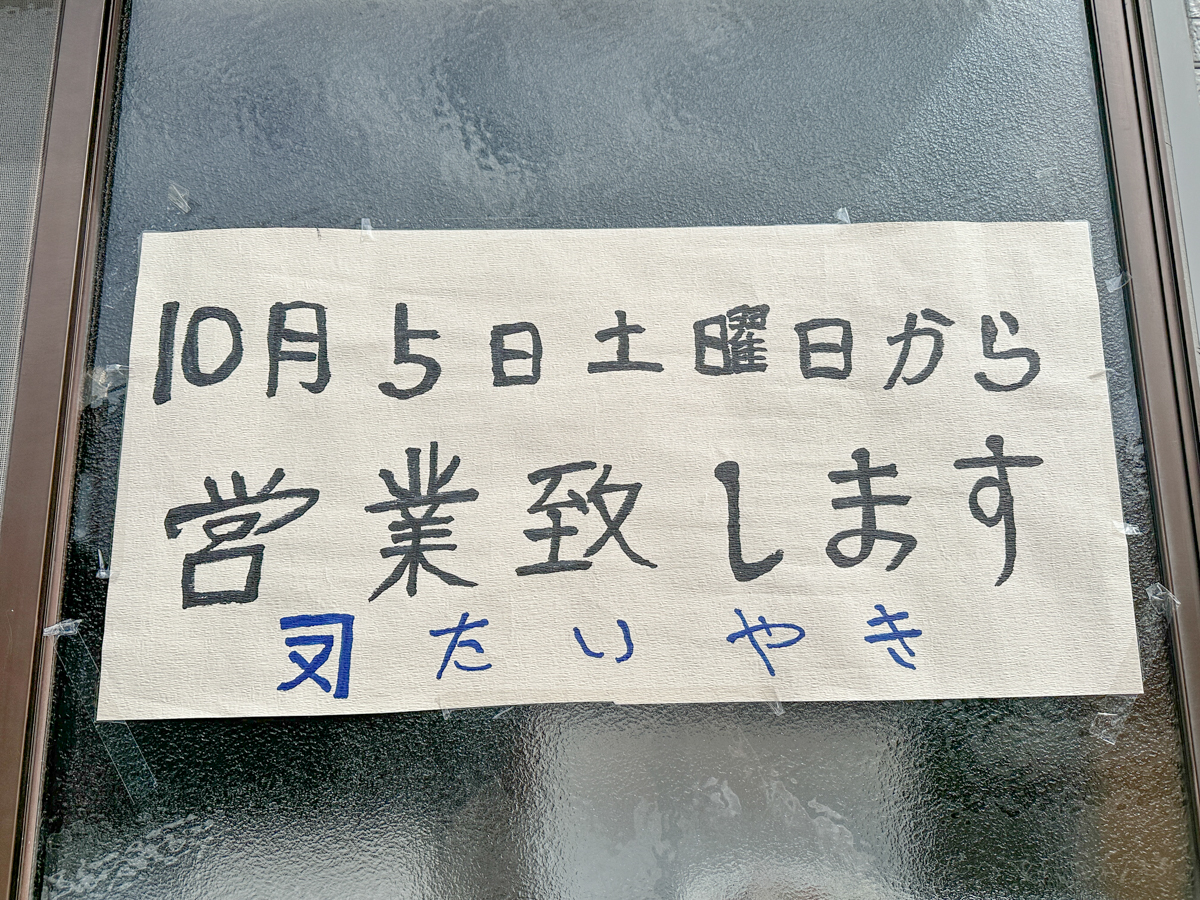 10月5日土曜日から
営業致します
又たいやき